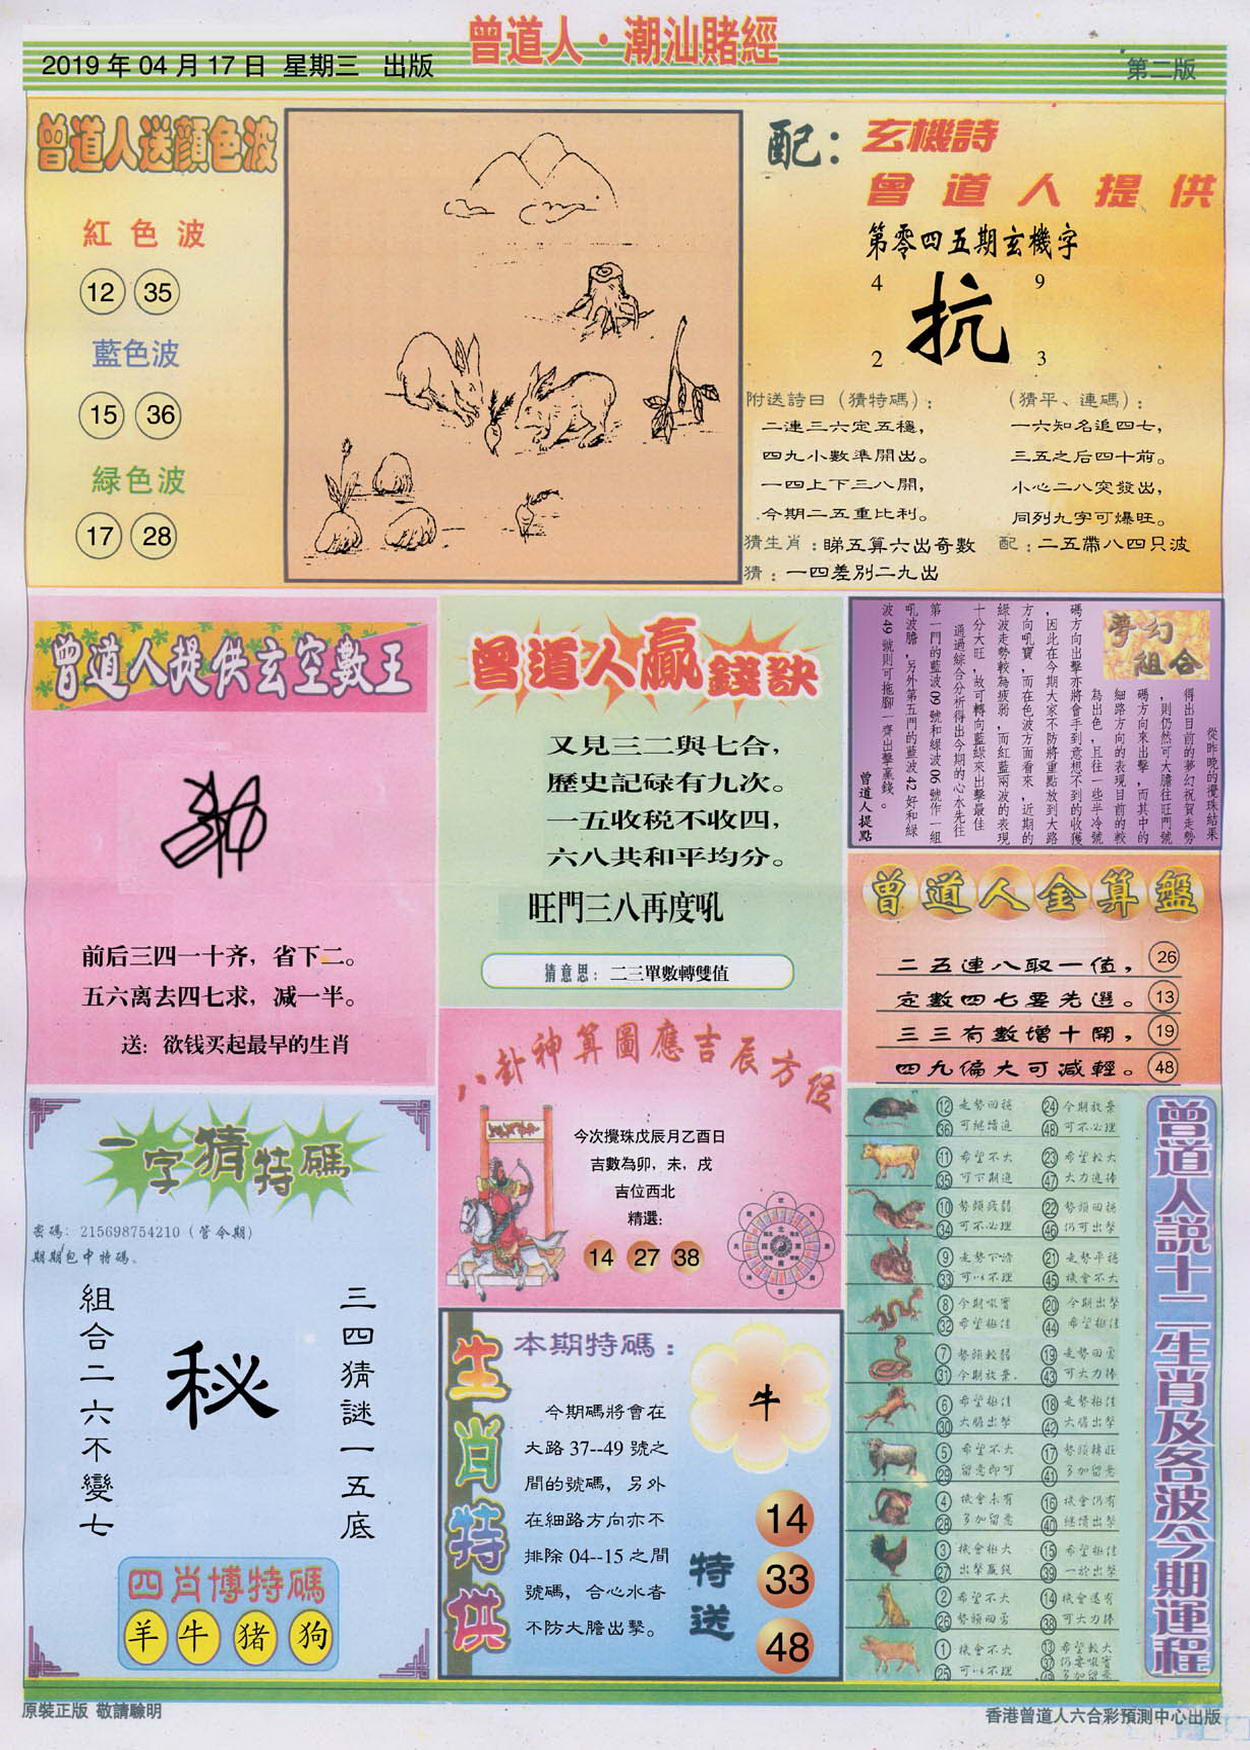 曾道人·潮汕賭經
2019 年 04 月 17 日 星期三 出版
第二版
曾道人送顔色波
紅色波
12 35
藍色波
15 36
緑色波
17 28
配：玄機詩
曾道人提供
第零四五期玄機字
4 9
抗
2 3
附送詩曰（猜特碼）：
二連三六定五穩，
四九小數準開出。
一四上下三八開，
今期二五重比利。
（猜平、連碼）：
一六知名追四七，
三五之后四十前。
小心二八突發出，
同列九字可爆旺。
猜生肖：睇五算六出奇數 配：二五帶八四只波
猜：一四差別二九出
曾道人提供玄空數王
前后三四一十齐，省下二。
五六离去四七求，减一半。
送：欲钱买起最早的生肖
曾道人贏錢訣
又見三二與七合，
歷史記碌有九次。
一五收税不收四，
六八共和平均分。
旺門三八再度吼
猜意思：二三單數轉雙值
夢幻組合
從昨晚的攪珠結果
得出目前的夢幻祝賀走勢
，則仍然可大膽往旺門號
碼方向來出擊，而其中的
細路方向的表現目前的較
為出色，且往一些半冷號
碼方向出擊亦將會手到意想不到的收獲
，因此在今期大家不防將重點放到大路
方向吼寶，而在色波方面看來，近期的
綠波走勢較為疲弱，而紅藍兩波的表現
十分大旺，故可轉向藍綠來出擊最佳
通過綜合分析得出今期的心水先往
第一門的藍波 09 號和綠波 06 號作一組
吼波膽，另外第五門的藍波 42 好和綠
波 49 號則可拖腳一齊出擊蠃錢。
曾道人提點
曾道人金算盤
二五連八取一值， 26
定數四七要先選。 13
三三有數增十開， 19
四九偏大可減輕。 48
八卦神算圖應吉辰方位
今次攪珠戊辰月乙酉日
吉數為卯，未，戌
吉位西北
精選：
14 27 38
一字猜特碼
密碼：215698754210（管令期）
期期包中特碼。
三四猜謎一五底
秘
組合二六不變七
四肖博特碼
羊 牛 猪 狗
生肖特供
本期特碼：
牛
今期碼將會在
大路 37--49 號之
間的號碼，另外
在細路方向亦不
排除 04--15 之間
號碼，合心水者
不防大膽出擊。
特送
14
33
48
曾道人說十二生肖及各波今期運程
12 走勢回穩 24 今期放棄
36 可繼續追 48 可不必理
11 希望不大 23 希望較大
35 可下期追 47 大力追捧
10 勢頭疲弱 22 勢頭回穩
34 可不必理 46 仍可出擊
9 走勢下滑 21 走勢平穩
33 可以不理 45 機會不大
8 今期吸寶 20 今期出擊
32 希望極佳 44 希望極佳
7 勢頭較弱 19 走勢回勇
31 今期放棄 43 可大力捧
6 希望極佳 18 走勢極佳
30 大膽出擊 42 大膽出擊
5 希望不大 17 勢頭轉旺
29 留意即可 41 多加留意
4 機會未有 16 機會仍有
28 多加留意 40 繼續出擊
3 機會極大 15 希望極佳
27 出擊贏錢 39 一於出擊
2 希望不大 14 機會還有
26 勢頭回勇 38 可大力捧
1 機會不大 13 希望較大
25 可以不理 37 仍要吸寶
49 多加留意
原裝正版 敬請驗明
香港曾道人六合彩預測中心出版